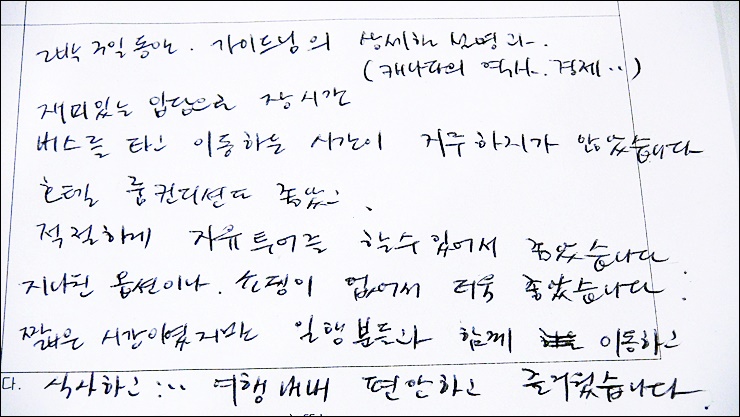 2박 3일동안. 가이드님의 상세한 설명과.
(캐나다의 역사. 경제..)
재미있는 입담으로 장시간
버스를 타고 이동하는 시간이 지루하지가 않았습니다
호텔 룸컨디션도 좋았고.
적절하게 자유투어를 할수있어서 좋았습니다
지나친 옵션이나. 쇼핑이 없어서 더욱 좋았습니다.
짧은 시간이였지만 일행분들과 함께 이동하고
다. 식사하고... 여행내내 편안하고 즐거웠습니다.